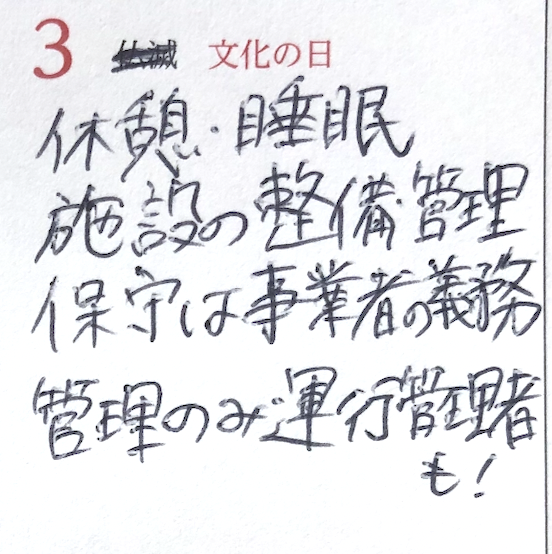 3 仏滅 文化の日
休憩・睡眠
施設の整備管理
保守は事業者の義務
管理のみ運行管理者
も!